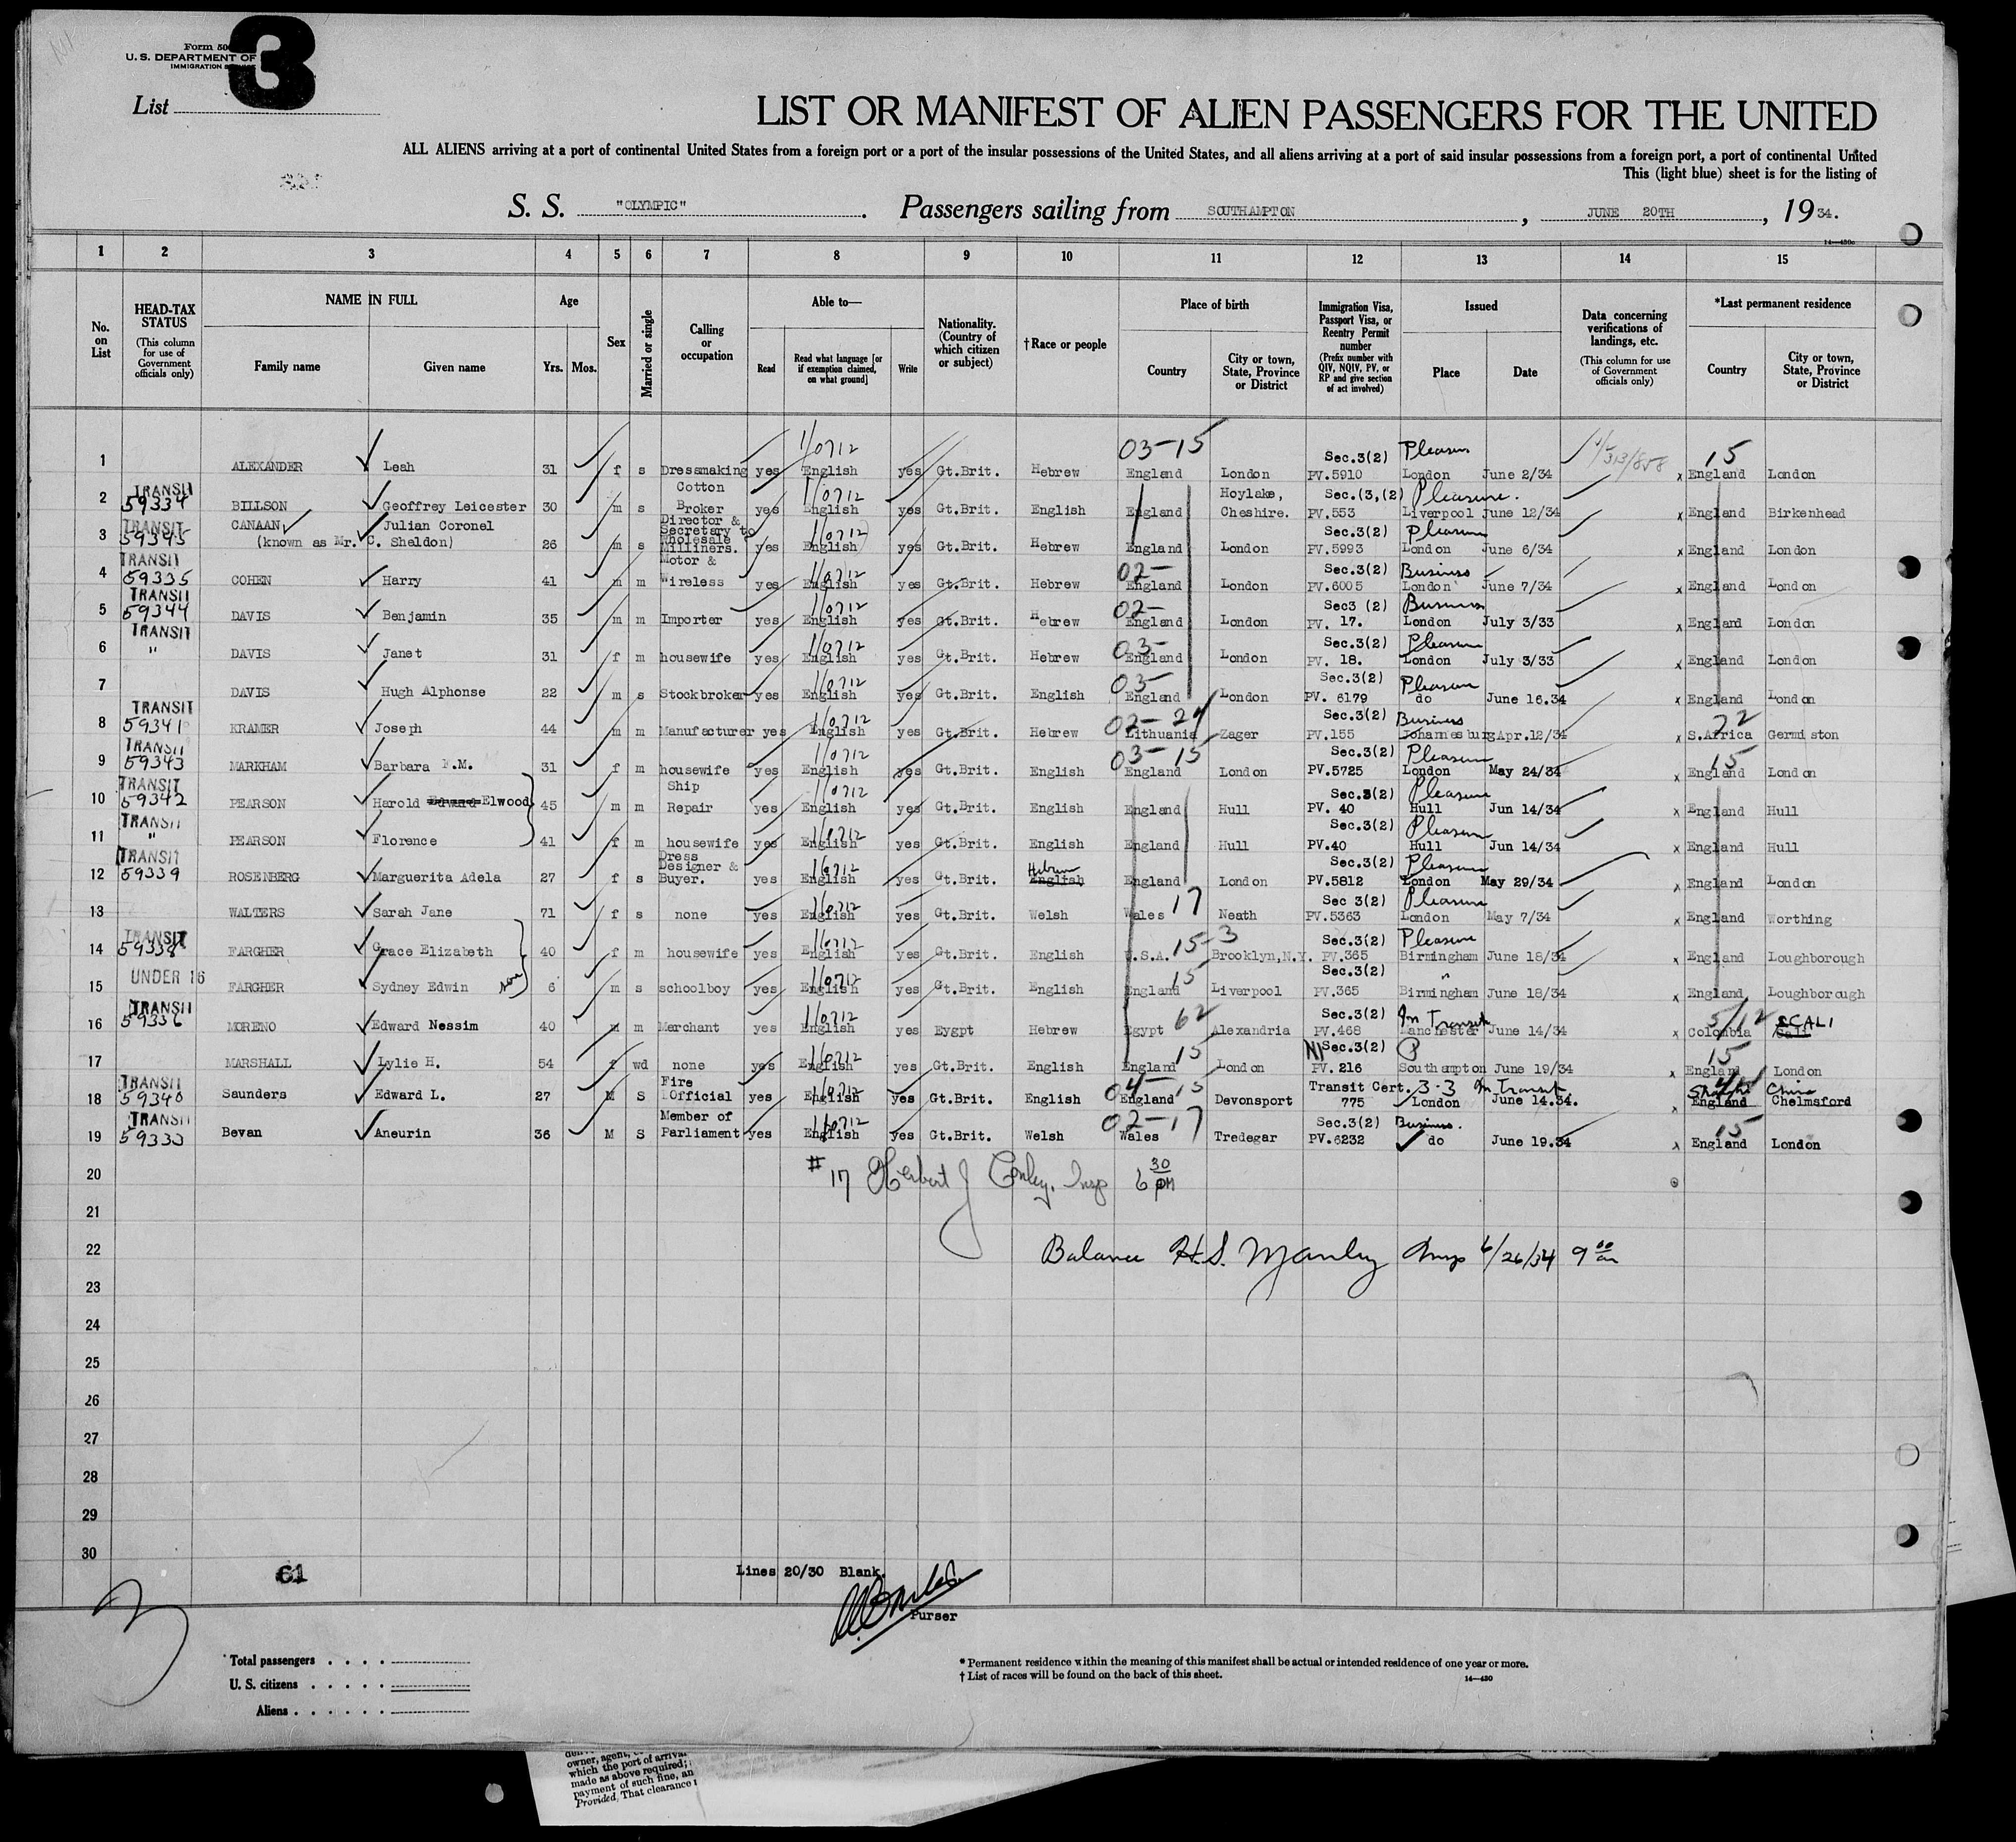 3
Form 500
U. S. DEPARTMENT OF
IMMIGRATION
List
LIST OR MANIFEST OF ALIEN PASSENGERS FOR THE UNITED
ALL ALIENS arriving at a port of continental United States from a foreign port or a port of the insular possessions of the United States, and all aliens arriving at a port of said insular possessions from a foreign port, a port of continental United
This (light blue) sheet is for the listing of
S. S. "OLYMPIC". Passengers sailing from SOUTHAMPTON, JUNE 20TH, 1934.
1 2 3 4 5 6 7 8 9 10 11 12 13 14 15
No. on List
HEAD-TAX STATUS (This column for use of Government officials only)
NAME IN FULL Family name Given name
Age Yrs. Mos.
Sex
Married or single
Calling or occupation
Able to— Read Read what language [or if exemption claimed, on what ground] Write
Nationality. (Country of which citizen or subject)
†Race or people
Place of birth Country City or town, State, Province or District
Immigration Visa, Passport Visa, or Reentry Permit number (Prefix number with QIV, NQIV, PV, or RP and give section of act involved)
Issued Place Date
Data concerning verifications of landings, etc. (This column for use of Government officials only)
*Last permanent residence Country City or town, State, Province or District
1 ALEXANDER Leah 31 f s Dressmaking yes 1/0712 English yes Gt.Brit. Hebrew 03-15 England London Sec.3(2) PV.5910 Pleasure London June 2/34 x 15 England London
2 TRANSIT 59334 BILLSON Geoffrey Leicester 30 m s Cotton Broker yes 1/0712 English yes Gt.Brit. English England Hoylake, Cheshire. Sec.(3,(2) PV.553 Pleasure. Liverpool June 12/34 x England Birkenhead
3 TRANSIT 59345 CANAAN Julian Coronel (known as Mr. C. Sheldon) 26 m s Director & Secretary to Wholesale Milliners. yes 1/0712 English yes Gt.Brit. Hebrew England London Sec.3(2) PV.5993 Pleasure London June 6/34 x England London
4 TRANSIT 59335 COHEN Harry 41 m m Motor & Wireless yes 1/0712 English yes Gt.Brit. Hebrew 02- England London Sec.3(2) PV.6005 Business London June 7/34 x England London
5 TRANSIT 59344 DAVIS Benjamin 35 m m Importer yes 1/0712 English yes Gt.Brit. Hebrew 02- England London Sec3 (2) PV. 17. Business London July 3/33 x England London
6 TRANSIT " DAVIS Janet 31 f m housewife yes 1/0712 English yes Gt.Brit. Hebrew 03- England London Sec.3(2) PV. 18. Pleasure London July 3/33 x England London
7 DAVIS Hugh Alphonse 22 m s Stockbroker yes 1/0712 English yes Gt.Brit. English 03- England London Sec.3(2) PV. 6179 Pleasure do June 16.34 x England London
8 TRANSIT 59341 KRAMER Joseph 44 m m Manufacturer yes 1/0712 English yes Gt.Brit. Hebrew 02-24 Lithuania Zager Sec.3(2) PV.155 Business Johannesburg Apr.12/34 x 72 S.Africa Germiston
9 TRANSIT 59343 MARKHAM Barbara F.M. 31 f m housewife yes 1/0712 English yes Gt.Brit. English 03-15 England London Sec.3(2) PV.5725 Pleasure London May 24/34 x 15 England London
10 TRANSIT 59342 PEARSON Harold Edward Elwood 45 m m Ship Repair yes 1/0712 English yes Gt.Brit. English England Hull Sec.3(2) PV. 40 Pleasure Hull Jun 14/34 x England Hull
11 TRANSIT " PEARSON Florence 41 f m housewife yes 1/0712 English yes Gt.Brit. English England Hull Sec.3(2) PV.40 Pleasure Hull Jun 14/34 x England Hull
12 TRANSIT 59339 ROSENBERG Marguerita Adela 27 f s Dress Designer & Buyer. yes 1/0712 English yes Gt.Brit. Hebrew English England London Sec.3(2) PV.5812 Pleasure London May 29/34 x England London
13 WALTERS Sarah Jane 71 f s none yes 1/0712 English yes Gt.Brit. Welsh Wales 17 Neath Sec 3(2) PV.5363 Pleasure London May 7/34 x England Worthing
14 TRANSIT 59338 FARGHER Grace Elizabeth 40 f m housewife yes 1/0712 English yes Gt.Brit. English U.S.A. 15-3 Brooklyn,N.Y. Sec.3(2) PV.365 Pleasure Birmingham June 18/34 x England Loughborough
15 UNDER 16 FARGHER Sydney Edwin son 6 m s schoolboy yes 1/0712 English yes Gt.Brit. English England 15 Liverpool Sec.3(2) PV.365 " Birmingham June 18/34 x England Loughborough
16 TRANSIT 59336 MORENO Edward Nessim 40 m m Merchant yes 1/0712 English yes Eygpt Hebrew Egypt 62 Alexandria Sec.3(2) PV.468 In Transit Manchester June 14/34 x 5/12 Colombia Cali SCALI
17 MARSHALL Lylie H. 54 f wd none yes 1/0712 English yes Gt.Brit. English England 15 London NI Sec.3(2) PV. 216 P Southampton June 19/34 x 15 England London
18 TRANSIT 59340 Saunders Edward L. 27 M S Fire Official yes 1/0712 English yes Gt.Brit. English 04-15 England Devonsport Transit Cert. 775 3-3 In Transit London June 14.34. England Chelmsford China
19 TRANSIT 59333 Bevan Aneurin 36 M S Member of Parliament yes 1/0712 English yes Gt.Brit. Welsh 02-17 Wales Tredegar Sec.3(2) PV.6232 Business. do June 19.34 x 15 England London
20 # 17 Herbert J Conley. Insp 6 30 PM
21
22 Balance H.S. Manley Insp 6/26/34 9 00 am
23
24
25
26
27
28
29
30
61
Lines 20/30 Blank.
Purser
3
Total passengers . . . .
U. S. citizens . . . . .
Aliens . . . . . .
* Permanent residence within the meaning of this manifest shall be actual or intended residence of one year or more.
† List of races will be found on the back of this sheet.
14—430
owner, agent,
which the port of arrival
made as above required;
payment of such fine, an
Provided, That clearance